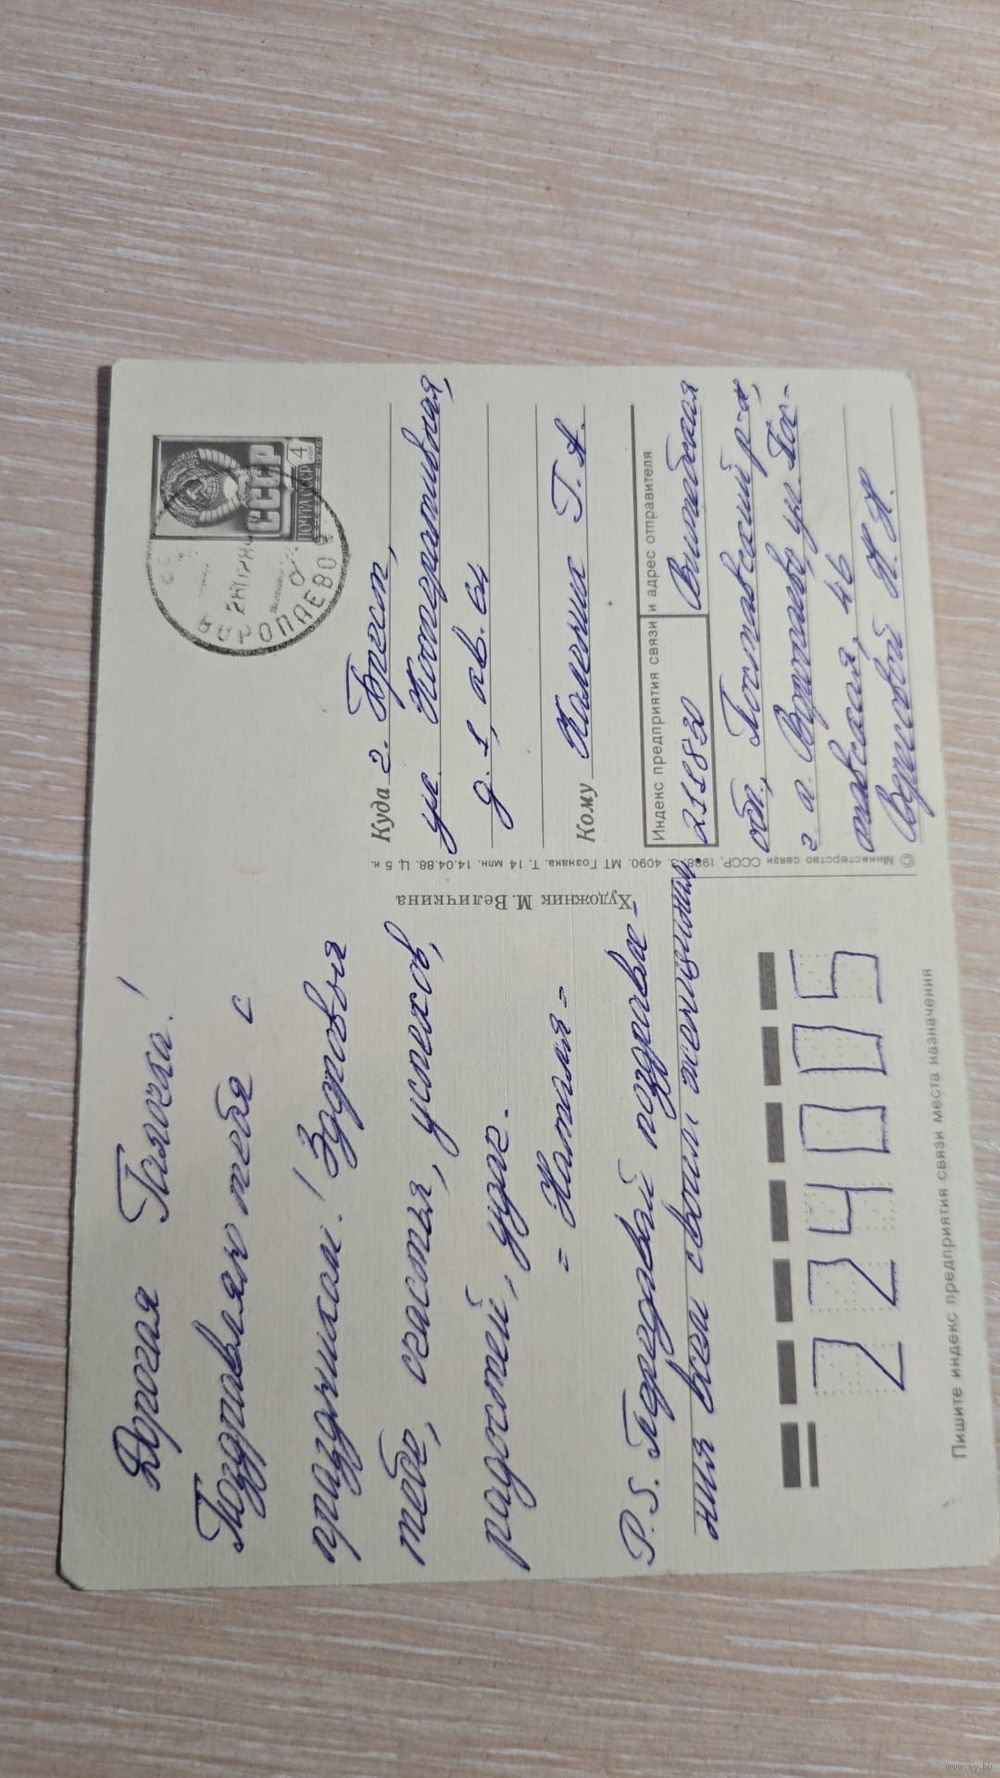 Дорогая Галочка!
Поздравляю тебя с
праздником! Здоровья
тебе, счастья, успехов,
радостей, удач.
= Наталия =
P.S. Передавай поздравле-
ния всем своим женщинам.
224005
Пишите индекс предприятия связи места назначения
Художник М. Величкина
© Министерство связи СССР, 1988. З. 4090. МТ Гознака. Т. 14 млн. 14.04.88. Ц. 5 к.
СССР
ПОЧТА СССР 4
ВОРОПАЕВО
Куда г. Брест,
ул. Кооперативная,
д. 1, кв. 64
Кому Калечиц Г. А.
Индекс предприятия связи и адрес отправителя
211830 Витебская
обл., Поставский р-н,
г. п. Воропаево ул. Пос-
тавская, 46
Н. Н.
www.ay.by